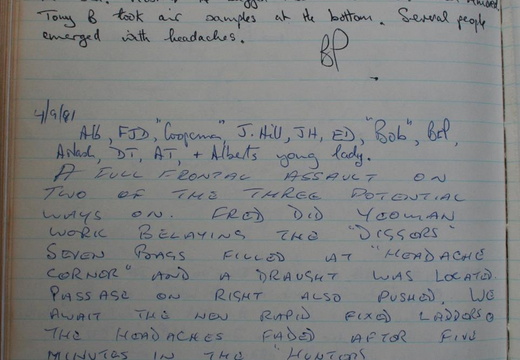 Tony B took air samples at the bottom. Several people
emerged with headaches.
BP
4/9/81
Alb, FJD, "Coopema" J. Hill, JH, ED, "Bob", BP,
DT, AT, + Alberts young lady.
A FULL FRONTAL ASSAULT ON
TWO OF THE THREE POTENTIAL
WAYS ON. FRED DID YEOMAN
WORK BELAYING THE "DIGGORS"
SEVEN BAGS FILLED AT "HEADACHE
CORNER" AND A DRAUGHT WAS LOCATED.
PASSAGE ON RIGHT ALSO PUSHED. WE
AWAIT THE NEW RAPID FIXED LADDERS
THE HEADACHES FADED AFTER FIVE
MINUTES IN THE "HUNTORS